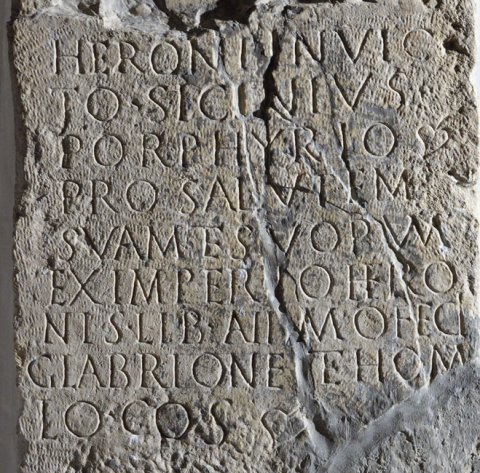 HERONI INVIC
TO·SICINIVS
PORPHYRIO ❧
PRO SALVTEM
SVAM·ESVORVM
EX IMPERIO HERO
NIS·LIB·ANIMO FECI
GLABRIONE ET HOM
LO·COS ❧